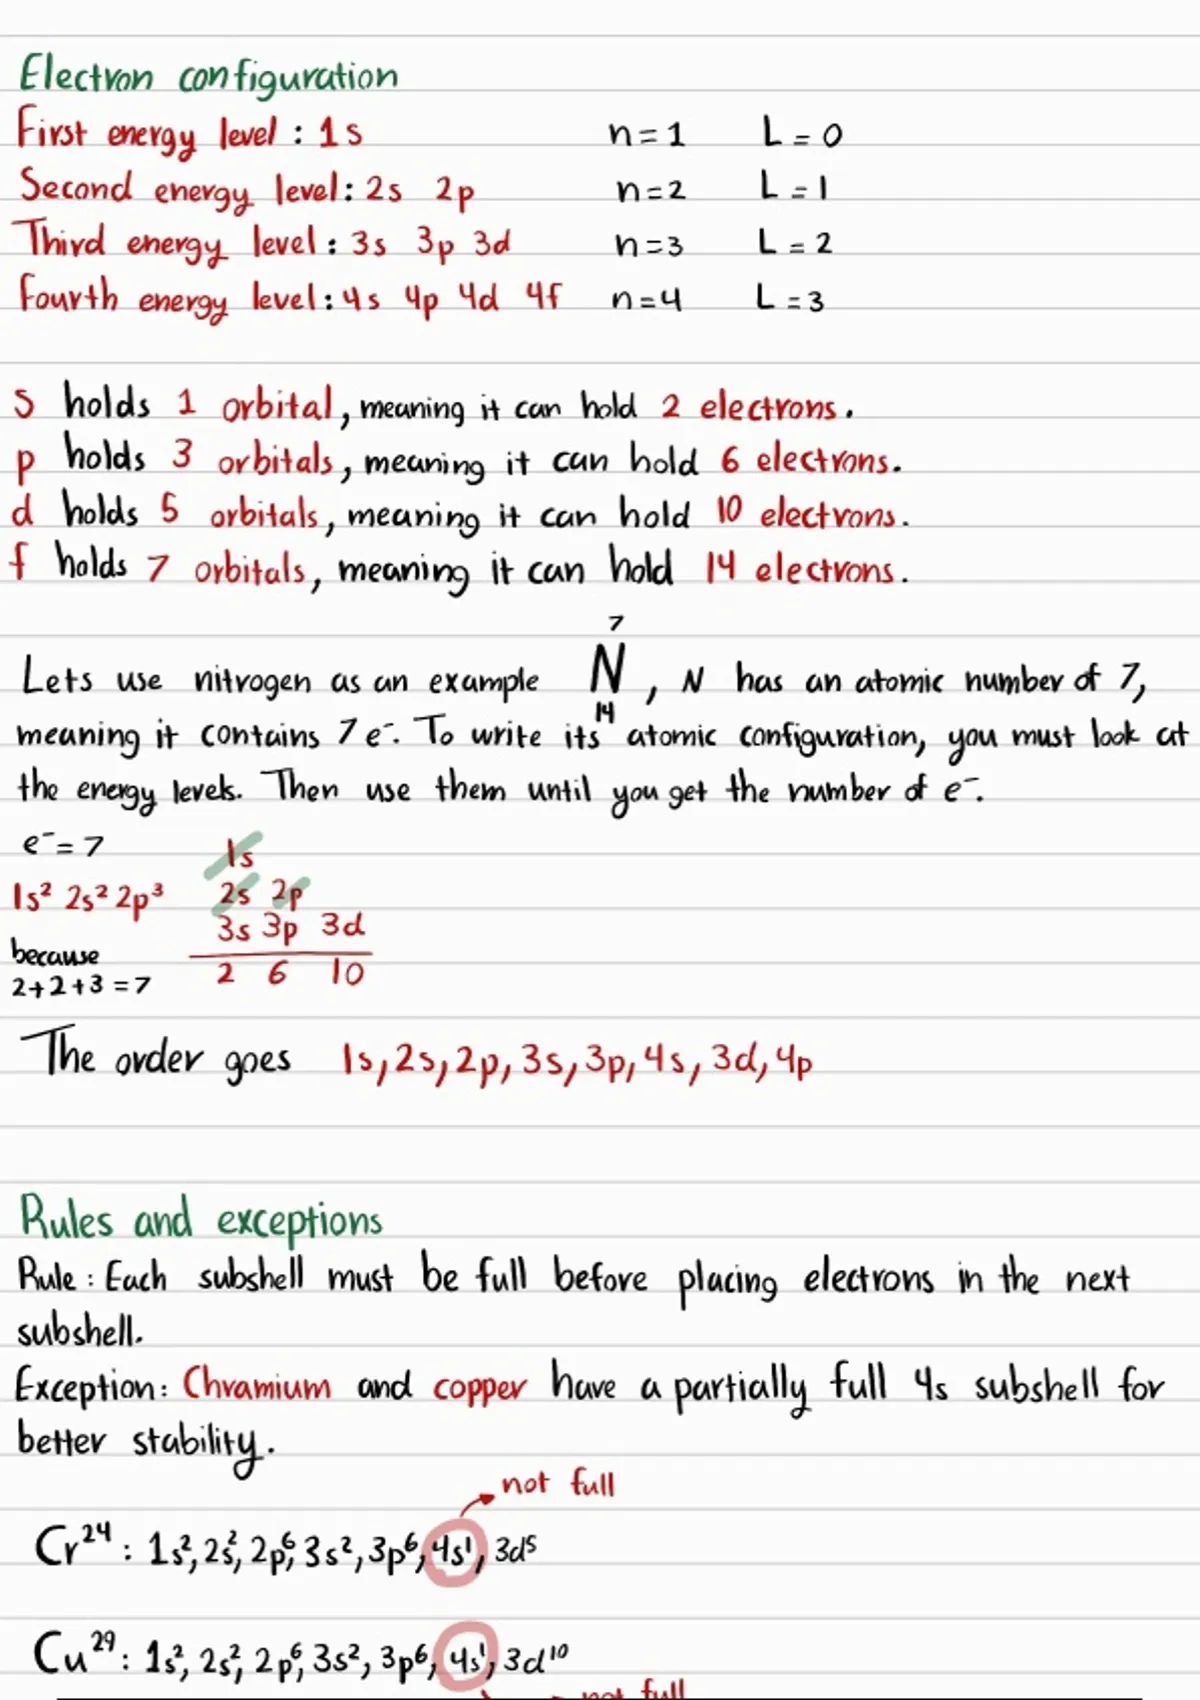 Electron configuration
First energy level : 1s n=1 L=0
Second energy level: 2s 2p n=2 L=1
Third energy level : 3s 3p 3d n=3 L=2
Fourth energy level: 4s 4p 4d 4f n=4 L=3
s holds 1 orbital, meaning it can hold 2 electrons.
p holds 3 orbitals, meaning it can hold 6 electrons.
d holds 5 orbitals, meaning it can hold 10 electrons.
f holds 7 orbitals, meaning it can hold 14 electrons.
7
Lets use nitrogen as an example N, N has an atomic number of 7,
14
meaning it contains 7 e⁻. To write its atomic configuration, you must look at
the energy levels. Then use them until you get the number of e⁻.
e⁻=7 1s
1s² 2s² 2p³ 2s 2p
3s 3p 3d
because
2 6 10
2+2+3=7
The order goes 1s, 2s, 2p, 3s, 3p, 4s, 3d, 4p
Rules and exceptions
Rule : Each subshell must be full before placing electrons in the next
subshell.
Exception: Chramium and copper have a partially full 4s subshell for
better stability.
not full
Cr²⁴ : 1s², 2s², 2p⁶, 3s², 3p⁶, 4s¹, 3d⁵
Cu²⁹ : 1s², 2s², 2p⁶, 3s², 3p⁶, 4s¹, 3d¹⁰
not full